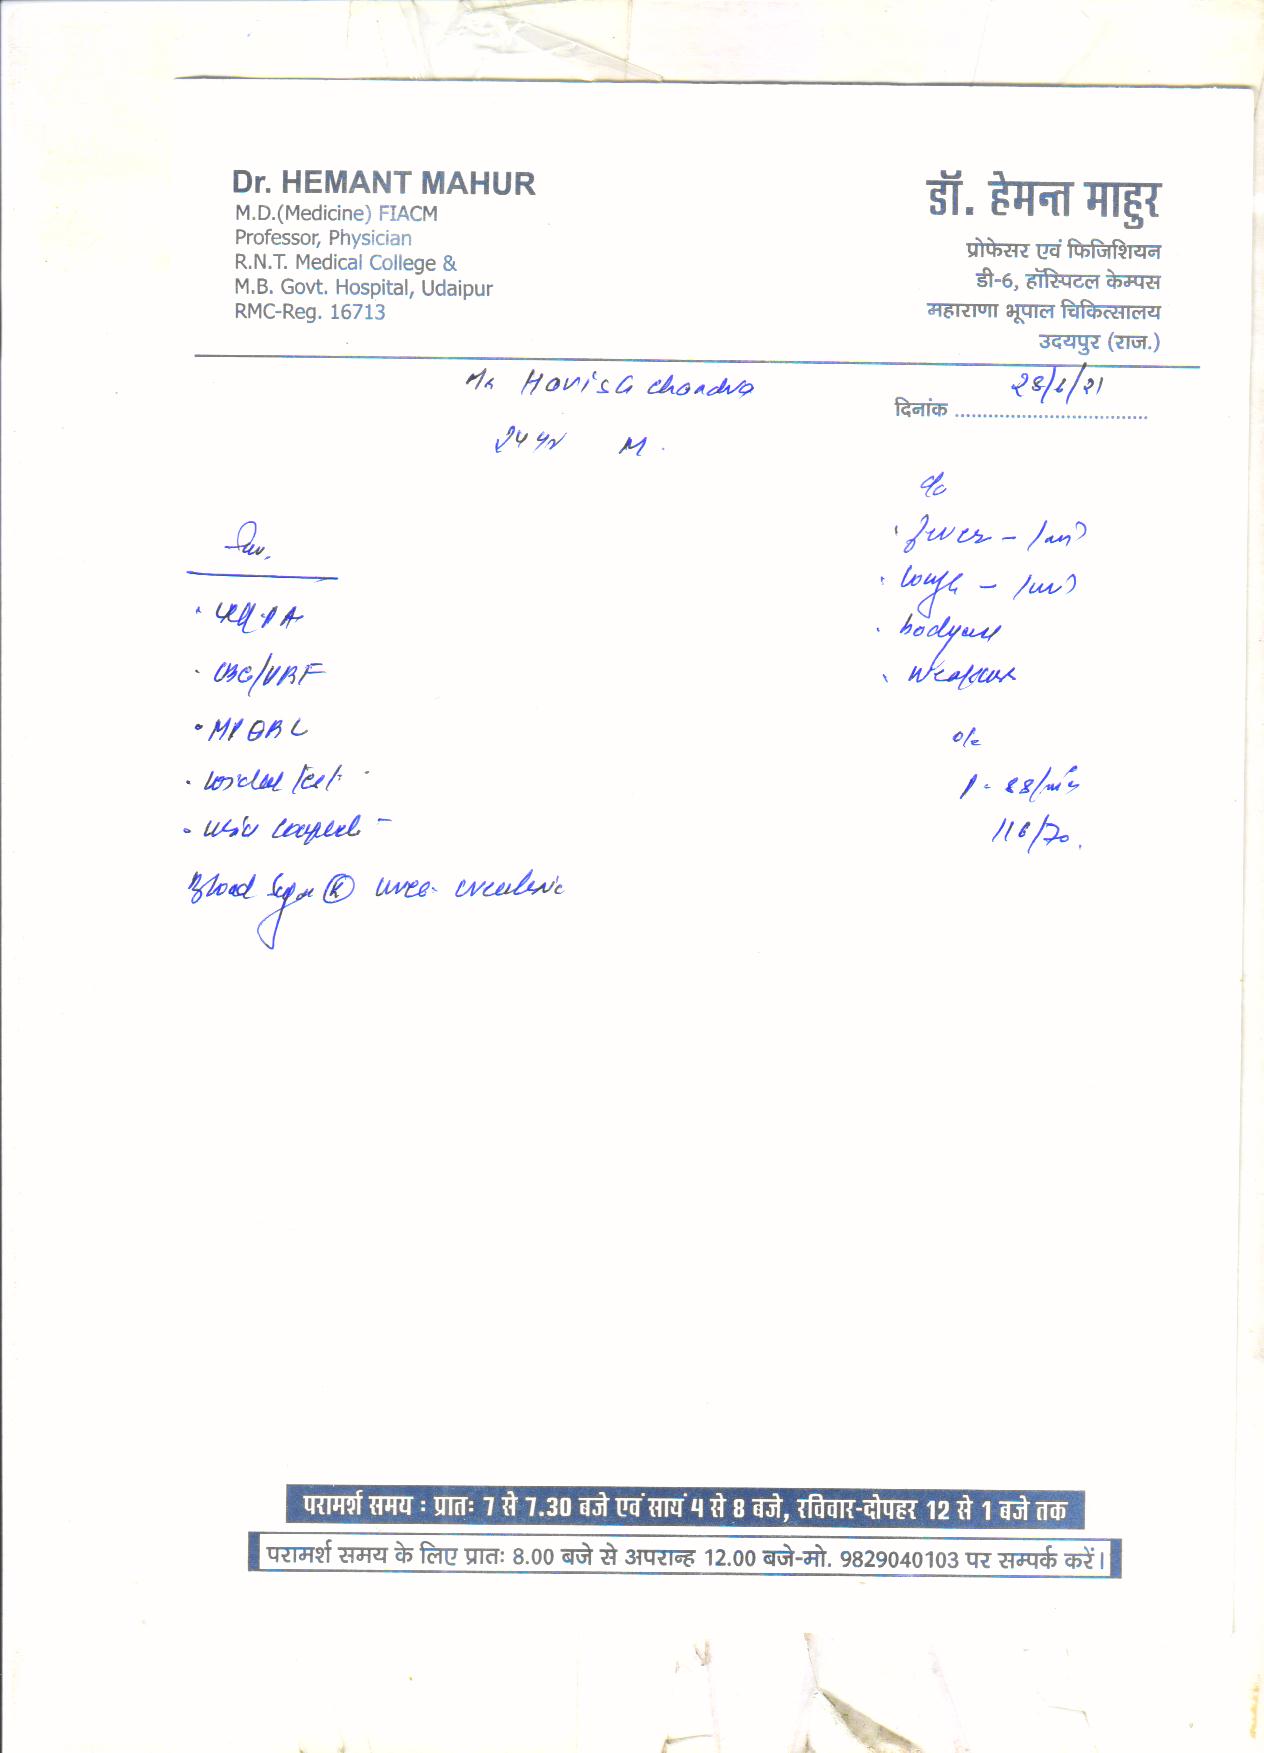 Dr. HEMANT MAHUR
M.D.(Medicine) FIACM
Professor, Physician
R.N.T. Medical College &
M.B. Govt. Hospital, Udaipur
RMC-Reg. 16713
डॉ. हेमन्त माहुर
प्रोफेसर एवं फिजिशियन
डी-6, हॉस्पिटल केम्पस
महाराणा भूपाल चिकित्सालय
उदयपुर (राज.)
Mr Harish Chandra
दिनांक
24 yr M.
c/o
Fever -
Cough -
bodyache
Weakness
o/e
P - 88/min
116/70.
Inv.
CBC/
MP QBC
Widal Test
Urine Complete -
Blood Sugar (R) urea creatinine
परामर्श समय : प्रातः 7 से 7.30 बजे एवं सायं 4 से 8 बजे, रविवार-दोपहर 12 से 1 बजे तक
परामर्श समय के लिए प्रातः 8.00 बजे से अपरान्ह 12.00 बजे-मो. 9829040103 पर सम्पर्क करें।